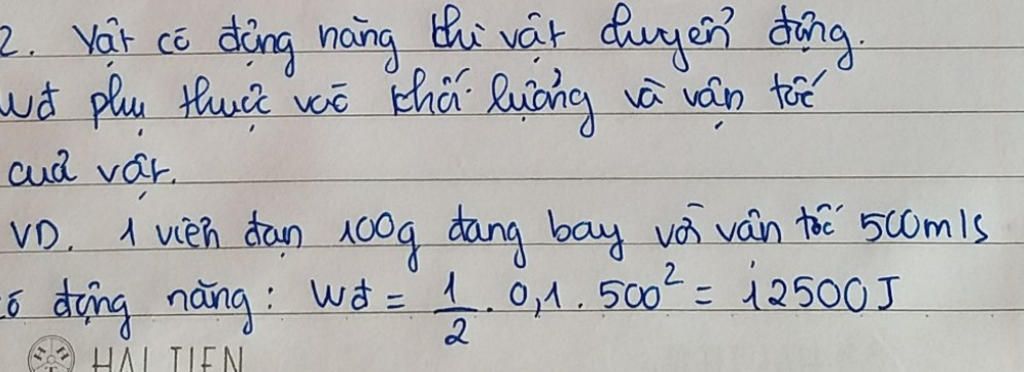 2. Vật có động năng thì vật chuyển động.
Wđ phụ thuộc vào khối lượng và vận tốc
của vật.
VD. 1 viên đạn 100g đang bay với vận tốc 500m/s
có động năng: Wđ = 1/2 . 0,1 . 500² = 12500J
HẢI TIẾN